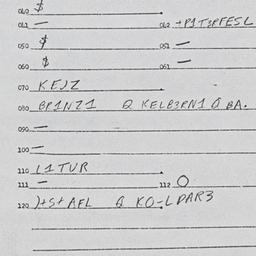 040 $
041 — 042 +P1T3RFESL
050 $ 051 —
060 $ 061 —
070 KEJZ
080 BR1NZ1 & KELB3RN1 & BA.
090 —
100 —
110 L1TUR
111 — 112 O
120 )+S+AFL & KO-LDAR3